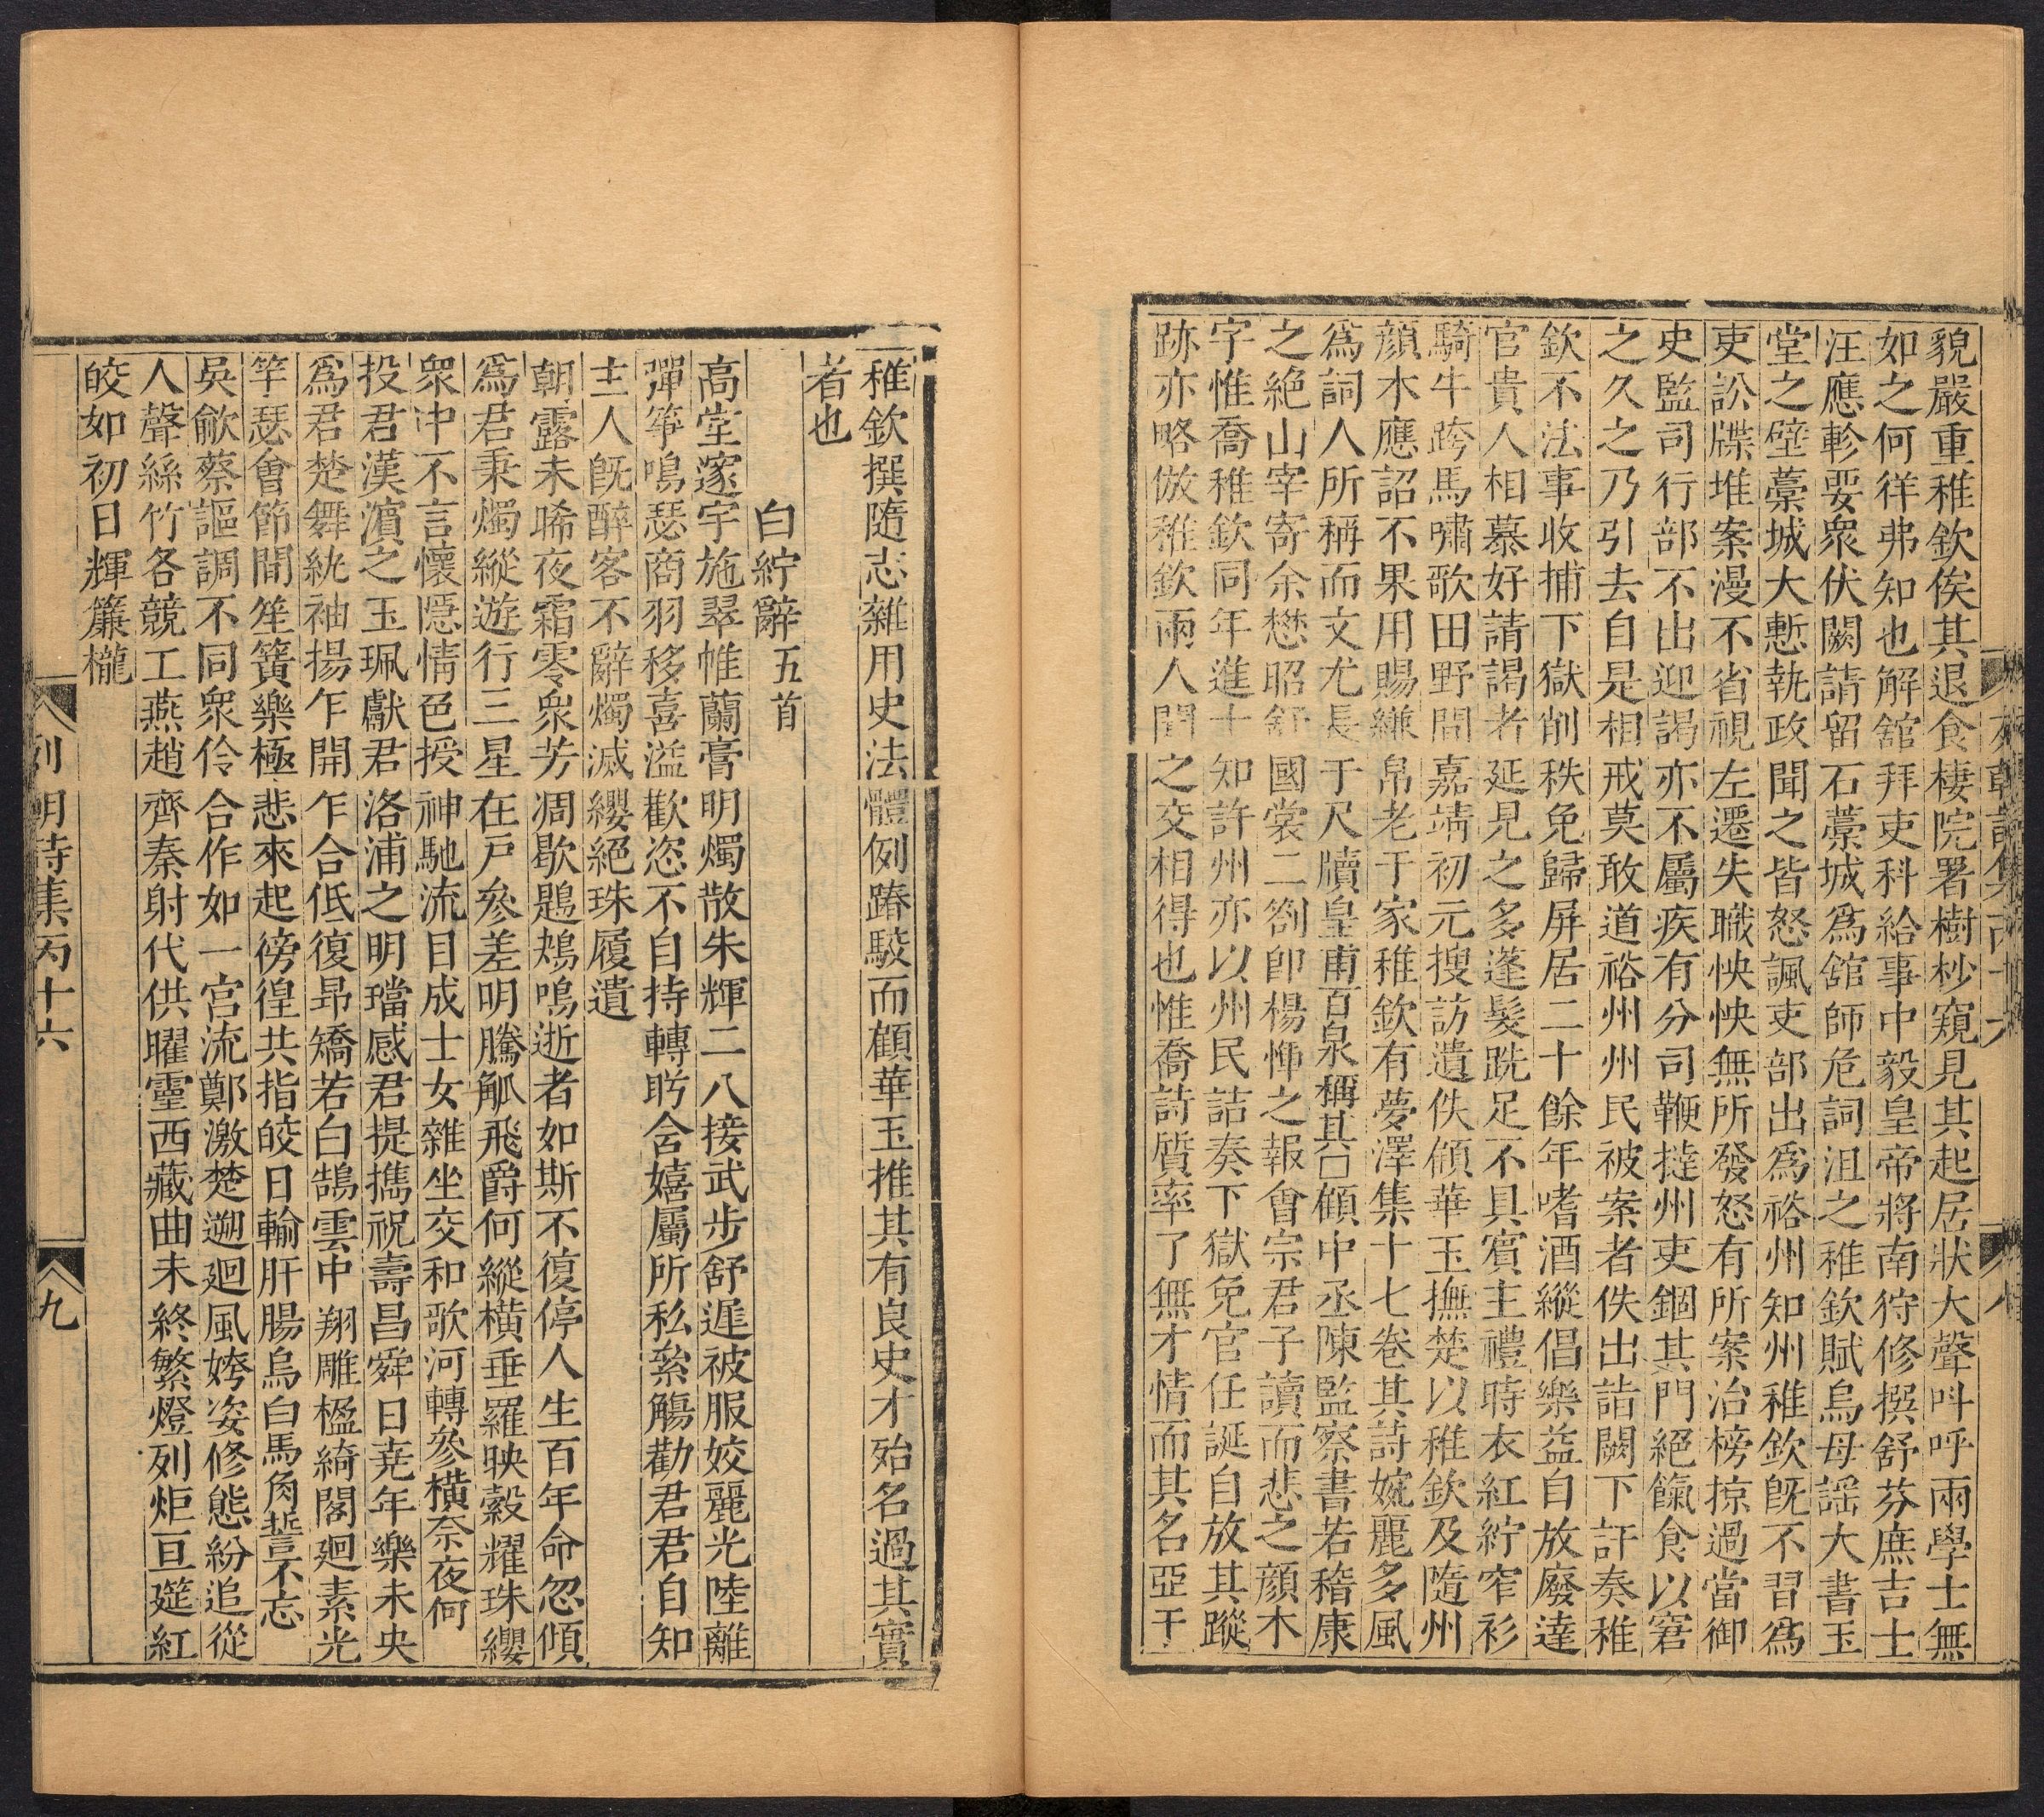 貌嚴重稚欽俟其退食棲院署樹杪窺見其起居狀大聲呌呼兩學士無
如之何徉弗知也解舘拜吏科給事中毅皇帝將南狩修撰舒芬庶吉士
汪應軫要衆伏闕請留石藁城爲舘師危詞沮之稚欽賦烏母謡大書玉
堂之壁藁城大慙執政聞之皆怒諷吏部出爲裕州知州稚欽旣不習爲
吏訟牒堆案漫不省視左遷失職怏怏無所發怒有所案治榜掠過當御
史監司行部不出迎謁亦不屬疾有分司鞭撻州吏錮其門絕餼食以窘
之久之乃引去自是相戒莫敢道裕州州民被案者佚出詣闕下訐奏稚
欽不法事收捕下獄削秩免歸屏居二十餘年嗜酒縱倡樂益自放廢達
官貴人相慕好請謁者延見之多蓬髮跣足不具賓主禮時衣紅紵窄衫
騎牛跨馬嘯歌田野間嘉靖初元搜訪遺佚顧華玉撫楚以稚欽及隨州
顏木應詔不果用賜縑帛老于家稚欽有夢澤集十七卷其詩婉麗多風
爲詞人所稱而文尤長于尺牘皇甫百泉稱其口顧中丞陳監察書若稽康
之絕山宰寄余懋昭舒國裳二劄即楊惲之報會宗君子讀而悲之顏木
字惟喬稚欽同年進士知許州亦以州民詰奏下獄免官任誕自放其蹤
跡亦略倣稚欽兩人閒之交相得也惟喬詩質率了無才情而其名亞于
列朝詩集丙十六
八
稚欽撰隨志雜用史法體例踳駮而顧華玉推其有良史才殆名過其實
者也
白紵辭五首
高堂邃宇施翠帷蘭膏明燭散朱輝二八接武步舒遲被服姣麗光陸離
彈箏鳴瑟商羽移喜溢歡恣不自持轉眄含嬉屬所私絫觴勸君君自知
主人旣醉客不辭燭滅纓絕珠履遺
朝露未晞夜霜零衆芳凋歇鶗鴂鳴逝者如斯不復停人生百年命忽傾
爲君秉燭縱遊行三星在戶參差明騰觚飛爵何縱橫垂羅映縠耀珠纓
衆中不言懷隱情色授神馳流目成士女雜坐交和歌河轉參橫奈夜何
投君漢濱之玉珮獻君洛浦之明璫感君提攜祝壽昌舜日堯年樂未央
爲君楚舞統袖揚乍開乍合低復昂矯若白鵠雲中翔雕楹綺閣廻素光
竽瑟會節間笙簧樂極悲來起徬徨共指皎日輸肝腸烏白馬角誓不忘
吳歈蔡謳調不同衆伶合作如一宮流鄭激楚遡廻風姱姿修態紛追從
人聲絲竹各競工燕趙齊秦射代供曜靈西藏曲未終繁燈列炬亘筵紅
皎如初日輝簾櫳
列明詩集丙十六
九